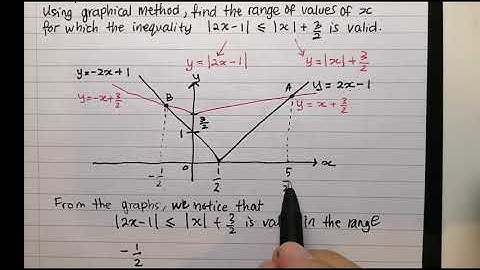 Using graphical method, find the range of values of x
for which the inequality |2x-1| ≤ |x| + 3/2 is valid.
y = |2x-1|
y = |x| + 3/2
y = -2x+1
y
A
y = 2x-1
y = -x+3/2
B
3/2
y = x + 3/2
1
0
x
-1/2
1/2
5
From the graphs, we notice that
|2x-1| ≤ |x| + 3/2 is valid in the range
-1/2